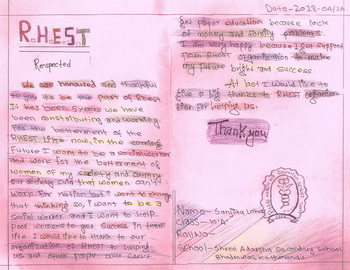 R.H.E.S.T
Respected
We are honoured and thankful
you to be the part of Rhest
It has been 5 years we have
been contributing and working
for the betterment of the
RHEST. Like now, in the coming
Future I want to be a socialworker
and work for the betterment of
women of my society and country
our society said that women can't
work for nation but I want to change
that thinking so, I want to be a
social worker and I want to help
poor womens to get success in there
life. I would like to thank to our
organization of RHEST to helping
us and other people who can't
Date-2018-04/
get proper education because lack
of money and family problems.
I am very happy because I got support
from RHEST organization to make
my future bright and success.
At last I would like to
give a big thanks to RHEST
for helping us.
Thank you
Name:- Sanjita
Class:- 10 'A'
Roll No:-
School:- Shree Adarsha Secondary School